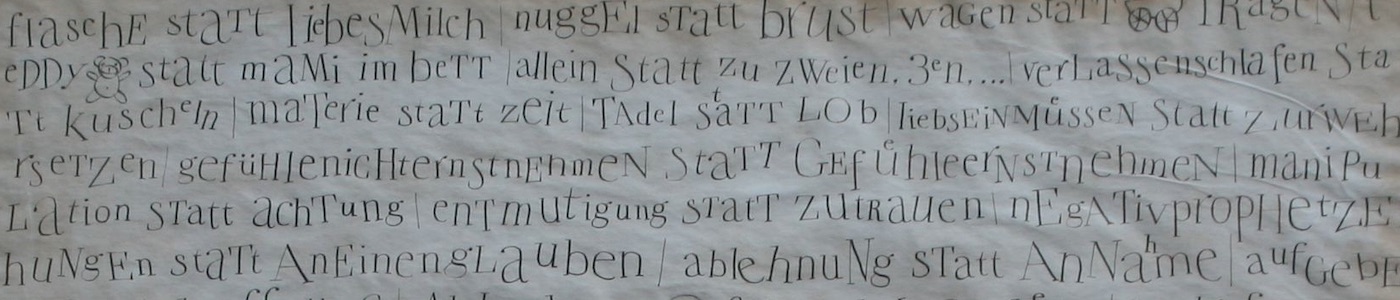 flaschE staTT liebesMilch | nuggEl sTatt brust | waGen staTT TRagEN | T
eDDy statt maMi im beTT | allein Statt zu zWeien. 3en.... | verLassenschlafen Sta
TT kuscheln | maTerie staTt zeit | TAdel sTaTT LOb | liebsEiNMüsseN Statt zurWEh
rsETZen | gefüHlenicHternstnEhmeN StaTT GEfühleerNsTnehmeN | maniPu
Lation STatt achTung | enTmutigung sTatT ZUtRauen | nEgATivpropHetzE
huNgEn staTt AnEinengLauben | ablehnuNg sTatt AnNahme | aufGebE